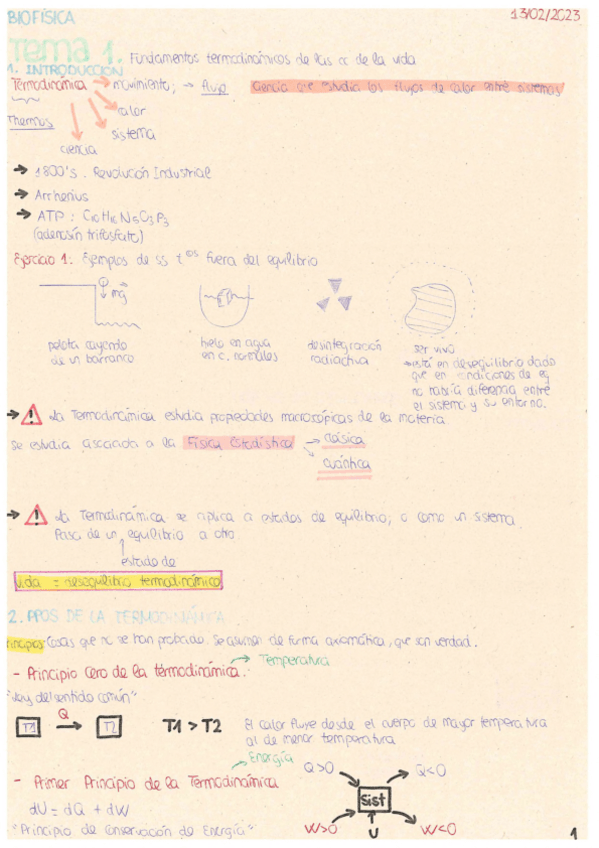 BIOFÍSICA
13/02/2023
Tema 1. Fundamentos termodinámicos de las cc de la vida
1. INTRODUCCIÓN
Termodinámica → movimiento; → flujo Ciencia que estudia los flujos de calor entre sistemas
Thermos
calor
sistema
ciencia
→ 1800's. Revolución Industrial
→ Arrhenius
→ ATP: C10 H16 N5 O3 P3
(adenosín trifosfato)
Ejercicio 1. Ejemplos de ss tcos fuera del equilibrio
mg
pelota cayendo
de un barranco
hielo en agua
en c. normales
desintegración
radiactiva
ser vivo
→ está en desequilibrio dado
que en condiciones de eq
no habría diferencia entre
el sistema y su entorno.
→ ! La Termodinámica estudia propiedades macroscópicas de la materia
se estudia asociada a la Física Estadística → clásica
cuántica
→ ! La Termodinámica se aplica a estados de equilibrio; o como un sistema
Pasa de un equilibrio a otro
estado de
vida = desequilibrio termodinámico
2. PPOS DE LA TERMODINÁMICA
Principios: Cosas que no se han probado. Se asumen de forma axiomática, que son verdad.
- Principio Cero de la termodinámica. → Temperatura
"Ley del sentido común"
T1 Q → T2 T1 > T2 El calor fluye desde el cuerpo de mayor temperatura
al de menor temperatura
- Primer Principio de la Termodinámica → Energía
dU = dQ + dW
"Principio de Conservación de Energía"
Q>0
Q<0
Sist
W>0
U
W<0
1